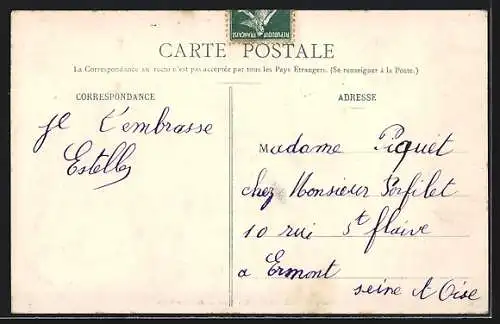 RÉPUBLIQUE FRANÇAISE
CARTE POSTALE
La Correspondance au recto n'est pas acceptée par tous les Pays Étrangers. (Se renseigner à la Poste.)
CORRESPONDANCE
je t'embrasse
Estelle
ADRESSE
Madame Piquet
chez Monsieur Porfilet
10 rui St flaive
a Ermont
seine et Oise